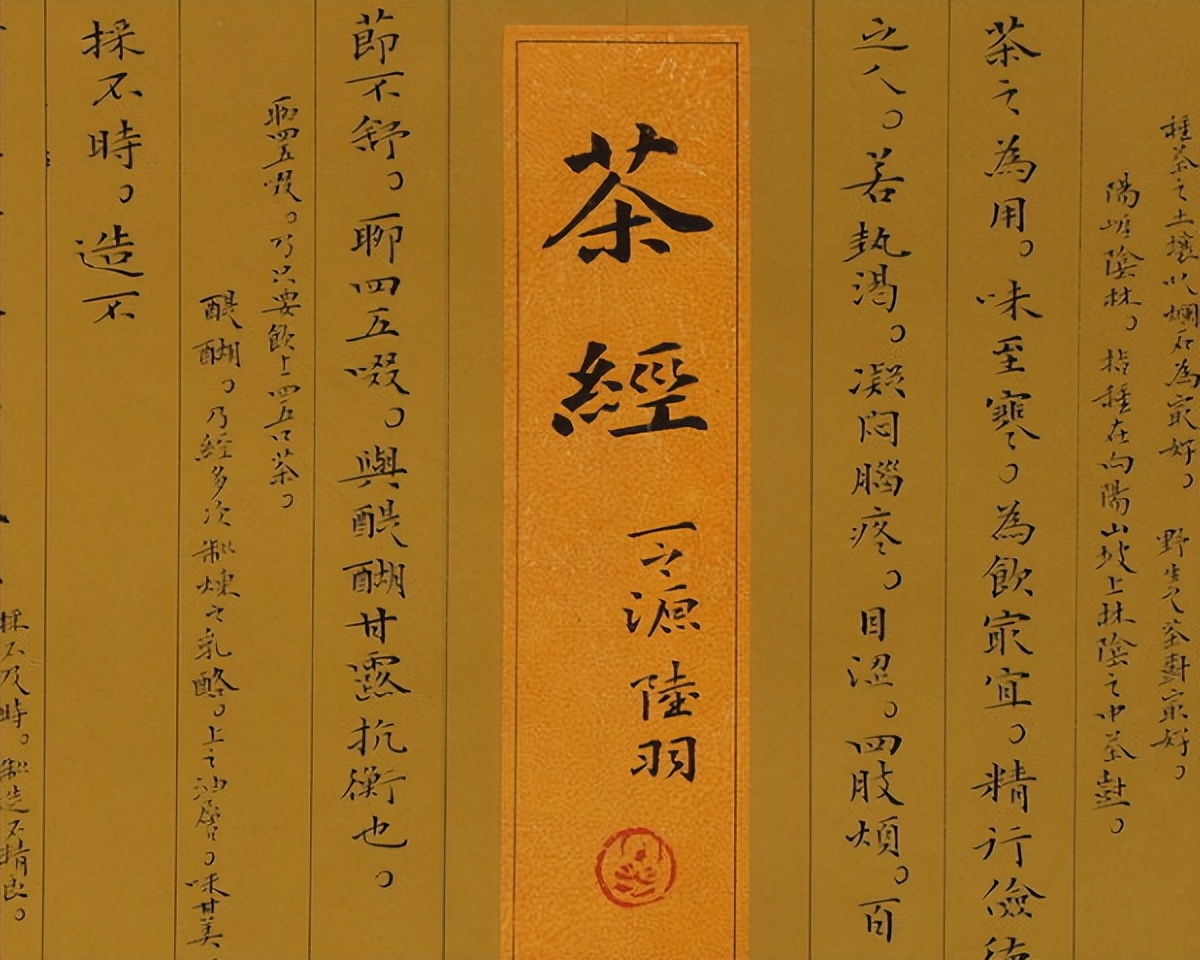 種茶之土壤以爛石為最好。野生之茶樹最好。
陽崖陰林。指種在向陽山坡上林陰之中茶樹。
茶之為用。味至寒。為飲最宜。精行儉德
之人。若熱渴。凝悶腦疼。目澀。四肢煩。百
茶經
一之源 陸羽
節不舒。聊四五啜。與醍醐甘露抗衡也。
聊四五啜。乃只要飲上四五口茶。
醍醐。乃經多次製煉之乳酪。上之油層。味甘美
採不時。造不
採不及時。製造不精良。